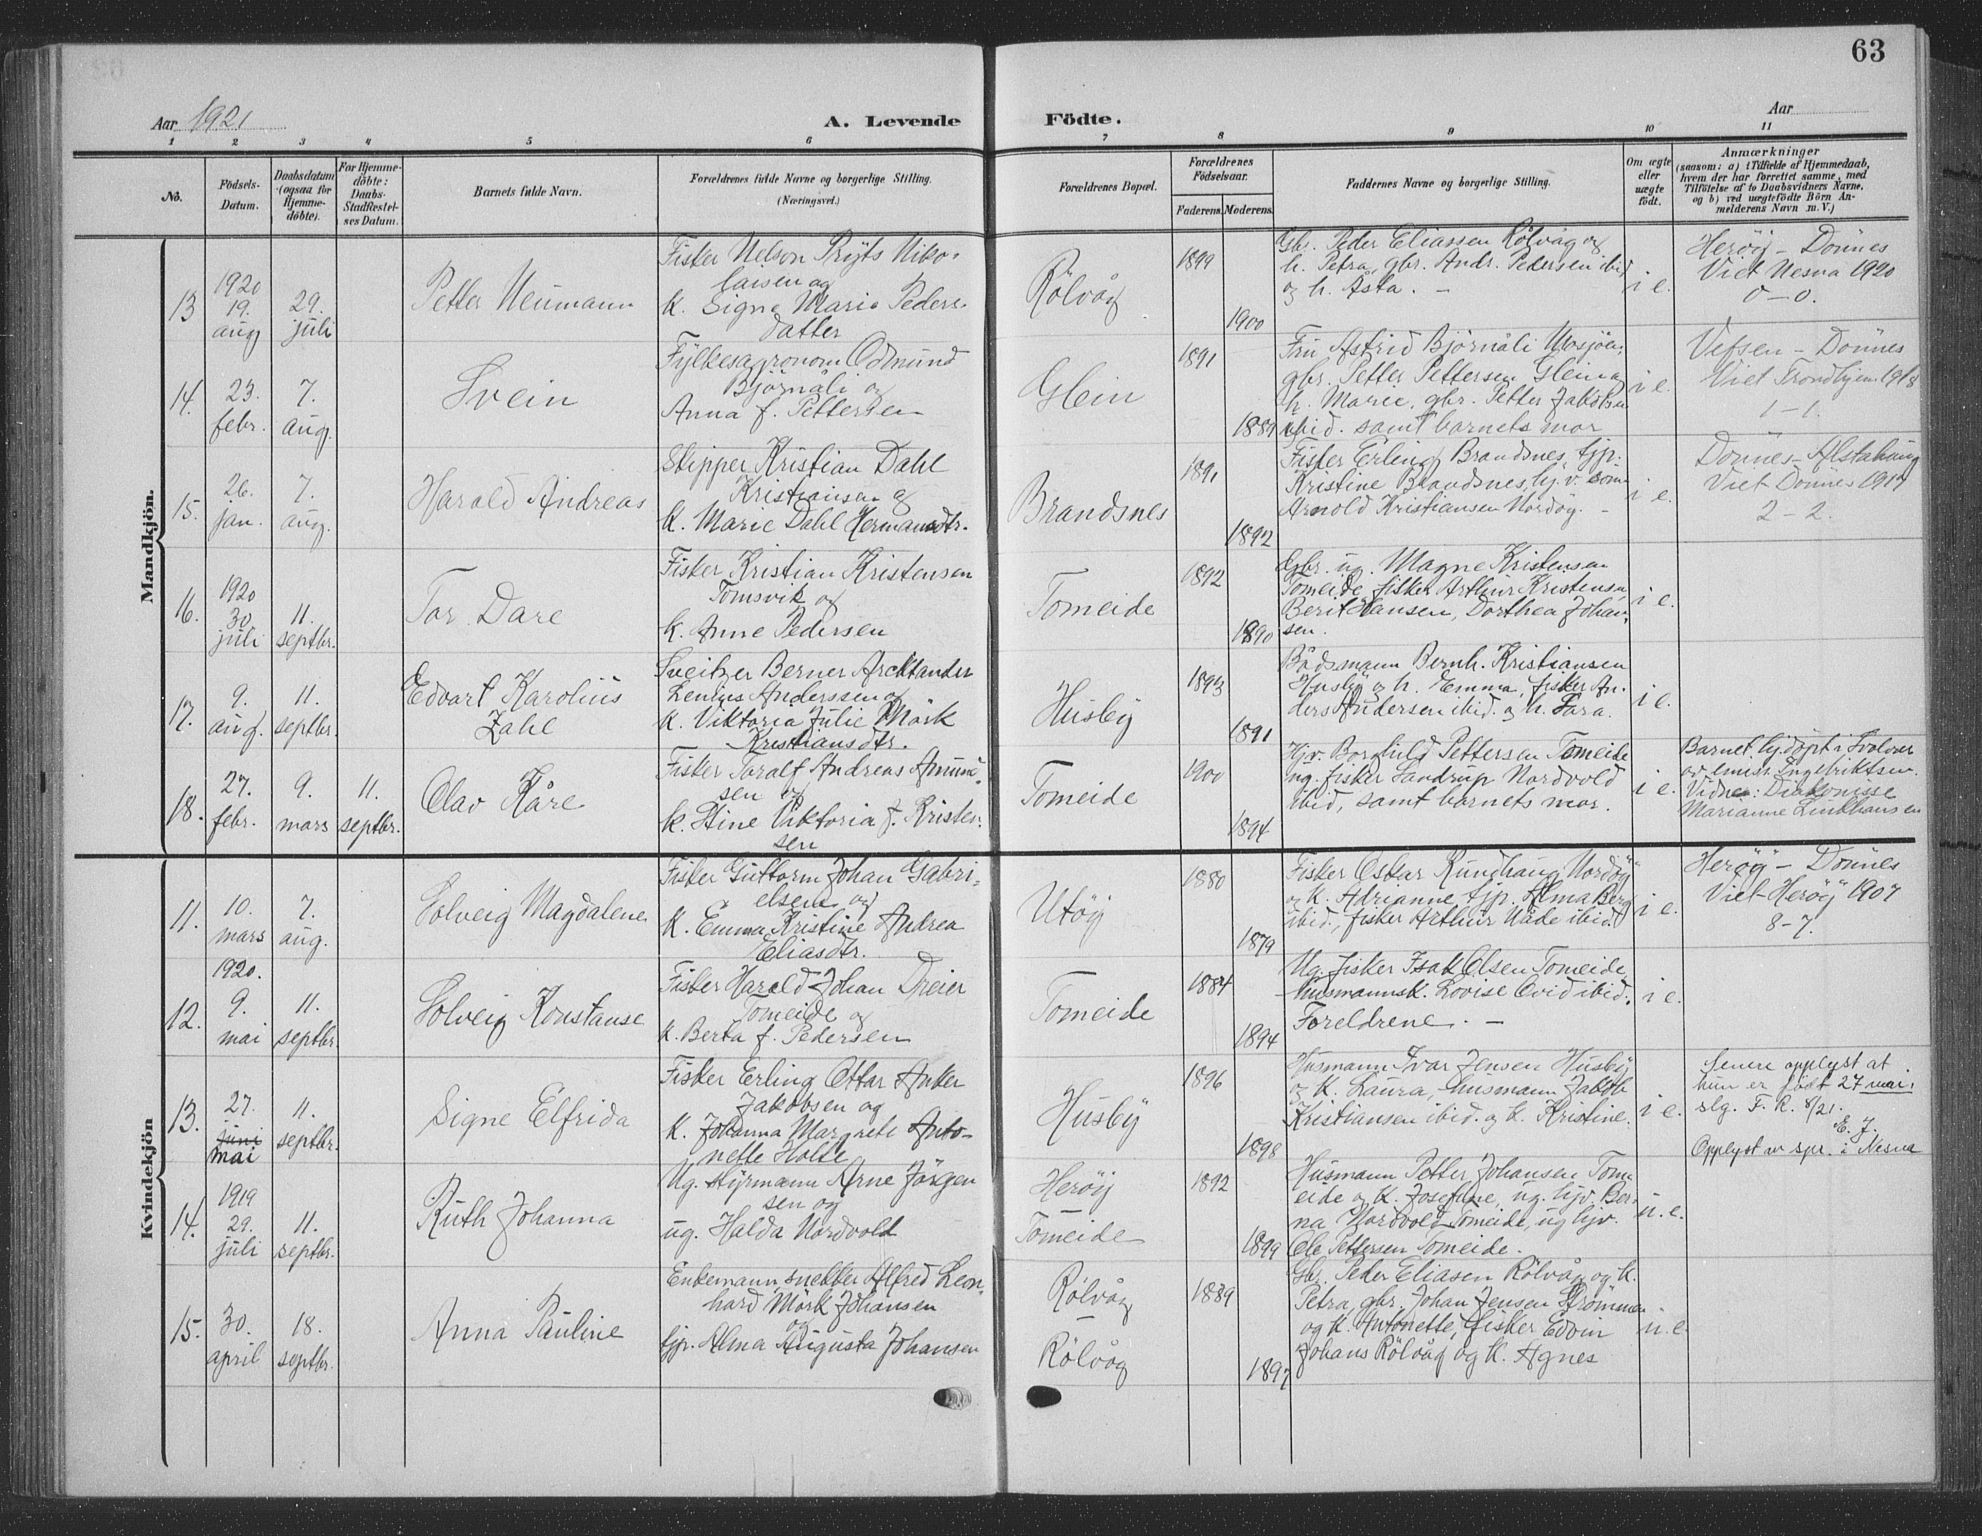 63
Aar 1921
A. Levende
Födte.
Aar
1 2 3 4 5 6 7 8 9 10 11
No.
Födsels-
Datum.
Daabsdatum
(ogsaa for
Hjemme-
döbte).
For Hjemme-
döbte:
Daabs-
Stadfæstel-
ses Datum.
Barnets fulde Navn.
Forældrenes fulde Navne og borgerlige Stilling.
(Næringsvei.)
Forældrenes Bopæl.
Forældrenes
Födselsaar.
Faderens. Moderens.
Faddernes Navne og borgerlige Stilling.
Om ægte
eller
uægte
födt.
Anmærkninger
(saasom: a) i Tilfælde af Hjemmedaab,
hvem der har forrettet samme, med
Tilföielse af to Daabsvidners Navne,
og b) ved uægtefödte Börn An-
melderens Navn m. V.)
Mandkjön.
13
1920
19.
aug
29.
juli
Petter Neumann
Fisker Nelson Prÿts Niko-
laisen og
k. Signe Marie Peders-
datter
Rölvåg
1899
1900
Gbr. Peder Eliassen Rölvåg og
h. Petra, gbr. Andr. Pedersen ibid
og h. Åsta. –
i e.
Heröÿ – Dönnes
Viet Nesna 1920
0–0.
14.
23.
febr.
7.
aug.
Svein
Fÿlkesagronom Odmund
Björnåli og
Anna f. Pettersen
Glein
1891
1889
Fru Astrid Björnåli Mosjöen,
gbr. Petter Pettersen Glein og
h. Marie, gbr. Petter Jakobsen
ibid. samt barnets mor
i e.
Vefsen – Dönnes
Viet Trondhjem 1918
1–1.
15.
26.
jan.
7.
aug.
Harald Andreas
Skipper Kristian Dahl
Kristiansen og
k. Marie Dahl Hermansdtr.
Brandsnes
1891
1892
Fisker Erling Brandsnes, tjp.
Kristine Brandsnes, hj.v. som
Arnold Kristiansen Nordöÿ. –
i e.
Dönnes – Alstahaug
Viet Dönnes 1917
2–2.
16.
1920
30.
juli
11.
septbr.
Tor Dare
Fisker Kristian Kristensen
Tomsvik og
k. Anne Pedersen
Tomeide
1892
1890
Gbr. ug. Magne Kristensen
Tomeide, fisker Arthur Kristensen,
Berit Hansen, Dorthea Johan-
sen.
i e.
17.
9.
aug.
11.
septbr.
Edvart Karolius
Zahl
Sveitzer Berner Arcktander
Zenius Anderssen og
k. Viktoria Julie Mörk
Kristiansdtr.
Husbÿ
1893
1891
Bådsmann Bernh. Kristiansen
Husbÿ og h. Emma, fisker An-
ders Andersen ibid. og h. Sara.
i e.
18.
27.
febr.
9.
mars
11.
septbr.
Olav Kåre
Fisker Toralf Andreas Amund-
sen og
k. Stine Viktoria f. Kristen-
sen
Tomeide
1900
1894
Hjv. Borghild Pettersen Tomeide
ug. fisker Sandrup Nordvold
ibid, samt barnets mor.
i e.
Barnet hj.döpt i Svolvær
av emiss. Ingebriktsen.
Vidner: Diakonisse
Marianne Linkhausen
Kvindekjön
11.
10.
mars
7.
aug.
Solveig Magdalene
Fisker Guttorm Johan Gabri-
elsen og
k. Emma Kristine Andrea
Eliasdtr.
Utöÿ
1880
1879
Fisker Oskar Rundhaug Nordöÿ
og k. Adrianne, tjp. Alma Berg
ibid, fisker Arthur Våde ibid.
i e.
Heröÿ – Dönnes
Viet Heröÿ 1907
8–7.
12.
1920.
9.
mai
11.
septbr.
Solveig Konstanse
Fisker Harald Johan Dreier
Tomeide og
k. Berta f. Pedersen
Tomeide
1884
1894
Ug. fisker Isak Olsen Tomeide,
husmannsk. Lovise Ovid ibid.
Foreldrene. –
i e.
13.
27.
juni
mai
11.
septbr.
Signe Elfrida
Fisker Erling Ottar Anker
Jakobsen og
k. Johanna Margrete Anto-
nette Holte
Husbÿ
1896
1898
Husmann Ivar Jensen Husbÿ
og k. Laura, husmann Jakob
Kristiansen ibid. og k. Kristine.
i e.
Senere opplyst at
hun er født 27 mai.
slg. F. R. 8/21.
E. J.
Opplyst av spr. i Nesna
14.
1919
29.
juli
11.
septbr.
Ruth Johanna
Ug. stÿrmann Arne Jörgen
sen og
ug. Halda Nordvold
Heröÿ
–
Tomeide
1892
1899
Husmann Petter Johansen Tom-
eide og k. Josefine, ug. hjv. Ber-
na Nordvold Tomeide, ug hjv.
Ole Pettersen Tomeide.
u. e.
15.
30.
april
18.
septbr.
Anna Pauline
Enkemann snekker Alfred Leon-
hard Mörk Johansen
og
tjp. Alma Augusta Johansen
Rölvåg
–
Rölvåg
1889
1897
Gbr. Peder Eliasen Rölvåg og k.
Petra, gbr. Johan Jensen Strömmen
og k. Antonette, fisker Edvin
Johans Rölvåg og k. Agnes
u. e.